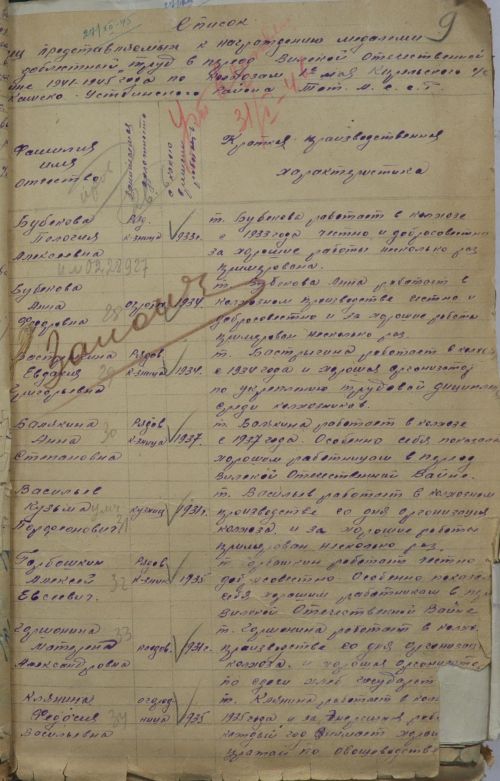 27/XII-45
9
Список
лиц представляемых к награждению медалями
доблестный труд в период Великой Отечественной
1941-1945 года по колхозам 1е мая
Устьинского района Тат. А. С. С. Р.
31/X-45
Фамилия
имя
отчество
занимаемая
должность
с какого
времени
работает
Краткая производственная
характеристика
Бубекова
Пелогия
Алексеевна
Ряд.
к-зница
1933г.
т. Бубекова работает в колхозе
с 1933 года честно и добросовестно
за хорошие работы несколько раз
примирована.
Бубекова
Анна
Федоровна
28
1934
т. Бубекова Анна работает в
колхозном производстве честно и
добросовестно и за хорошие работы
примирован несколько раз.
Вострыгина
Евдокия
Григорьевна
Рядов
к-зница
1934.
т. Вастрыгина работает в колхозе
с 1934 года и хорошая организатор
по укреплению трудовой дициплин
среди колхозников.
Балякина
Анна
Степановна
30
Рядов
к-зница
1937.
т. Балякина работает в колхозе
с 1937 года. Особенно себя показала
хорошом работницам в период
Великой Отечественной Войне.
Васильев
Кузьма
31
кузнец
1931г.
т. Васильев работает в колхозном
производстве со дня организации
колхоза и за хорошие работы
примирован несколько раз.
Горбашкин
Алексей
Евсеевич.
32
Рядов.
к-зник
1935
т. Горбашкин работает честно
добросовестно Особенно показал
себя хорошим работникам в пер
Великой Отечественной Войне
Горшонина
Матрена
Александровна
33
рядов.
1931г.
т. Горшонина работает в колхоз
производстве со дня организац
колхоза, и хорошая организатор
по сдачи хлеб государст
Клянина
Федосия
Васильевна
34
огород-
ница
1935
т. Клянина работает в колхо
1935 года и за
каждый год снимает хорош
уражай по овощеводстве